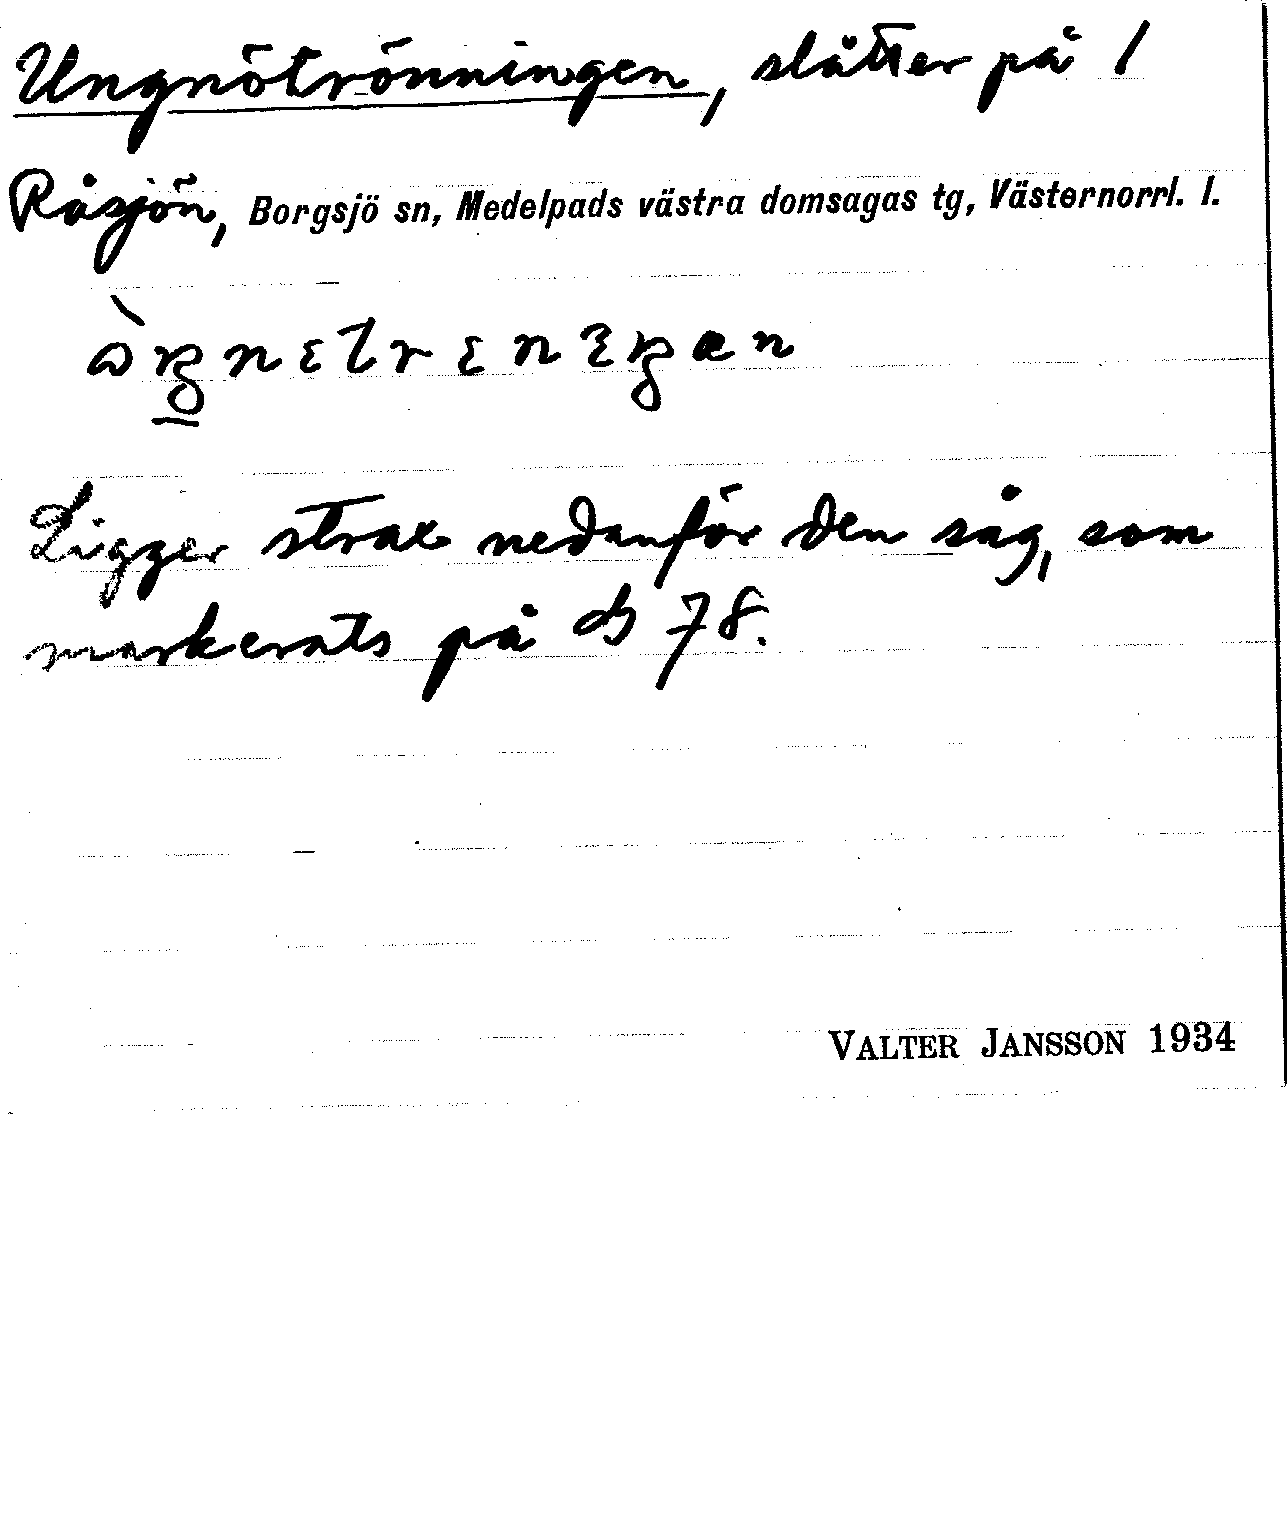 Ungnötrönningen, slåtter på 1
Råsjön, Borgsjö sn, Medelpads västra domsagas tg, Västernorrl. l.
Ligger strax nedanför den såg, som
markerats på 78.
VALTER JANSSON 1934